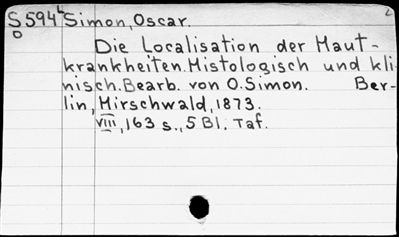 S594b Simon, Oscar. 2
O
Die Localisation der Haut-
krankheiten. Histologisch und kli-
nisch. Bearb. von O. Simon. Ber-
lin, Hirschwald, 1873.
VIII, 163 s., 5 Bl. Taf.